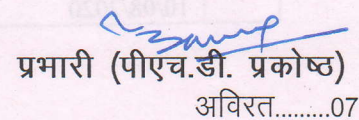 प्रभारी (पीएच.डी. प्रकोष्ठ)
अविरत.........07